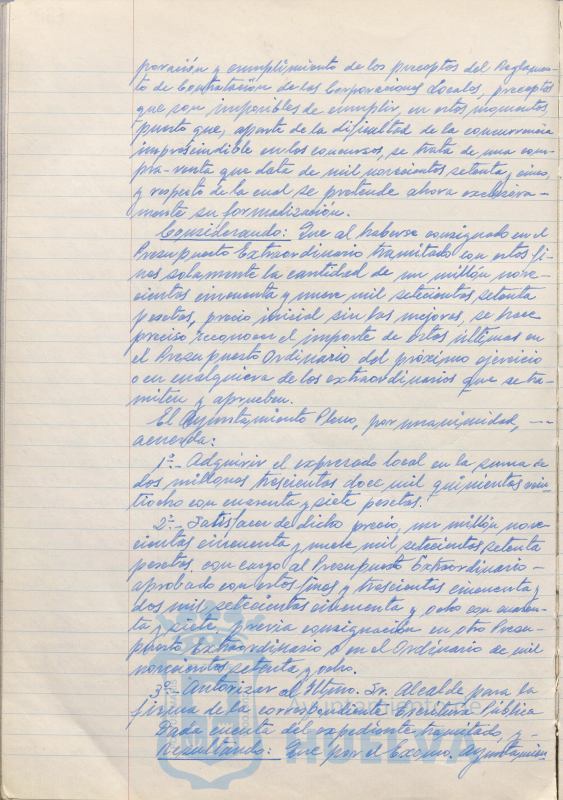 poración y cumplimiento de los preceptos del Reglamen-
to de Contratación de las Corporaciones Locales, preceptos
que son imposibles de cumplir, en estos momentos
puesto que, aparte de la dificultad de la concurrencia
imprescindible en los concursos, se trata de una com-
pra-venta que data de mil novecientos setenta y cinco,
y respecto de la cual se pretende ahora exclusiva-
mente su formalización.
Considerando: Que al haberse consignado en el
Presupuesto Extraordinario tramitado con estos fi-
nes solamente la cantidad de un millón nove-
cientas cincuenta y nueve mil setecientas setenta
pesetas, precio inicial sin las mejoras, se hace
preciso reconocer el importe de estas últimas en
el Presupuesto Ordinario del próximo ejercicio
o en cualquiera de los extraordinarios que se tra-
miten y aprueben.
El Ayuntamiento Pleno, por unanimidad, --
acuerda:
1º.- Adquirir el expresado local en la suma de
dos millones trescientas doce mil quinientas vein-
tiocho con cuarenta y siete pesetas.
2º.- Satisfacer de dicho precio, un millón nove-
cientas cincuenta y nueve mil setecientas setenta
pesetas con cargo al Presupuesto Extraordinario -
aprobado con estos fines y trescientas cincuenta y
dos mil setecientas cincuenta y ocho con cuaren-
ta y siete previa consignación en otro Presu-
puesto Extraordinario o en el Ordinario de mil
novecientos setenta y ocho.
3º.- Autorizar al Iltmo. Sr. Alcalde para la
firma de la correspondiente Escritura Pública
Dada cuenta del expediente tramitado, y -
Resultando: Que por el Excmo. Ayuntamien-
Ayuntamiento de
HUELVA